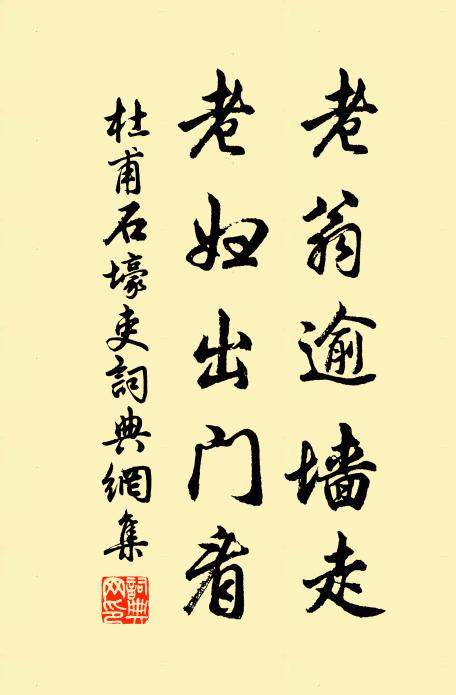 老翁逾墙走
老妇出门看
杜甫石壕吏詞典網集
詞典网印